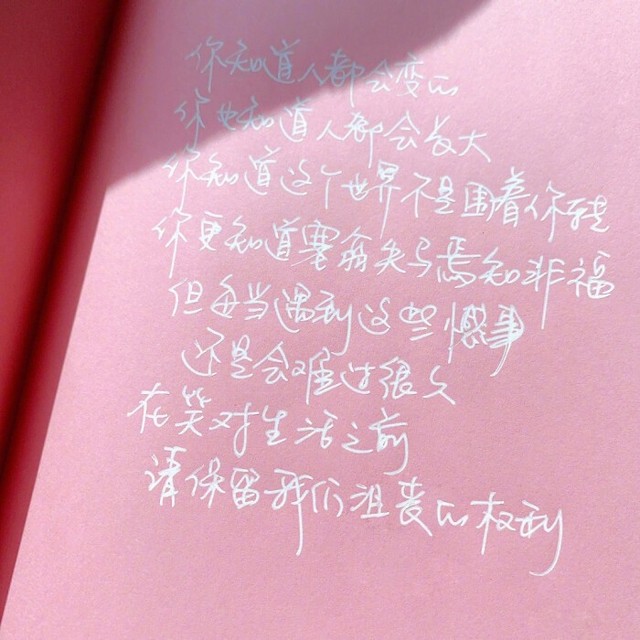 你知道人都会变的
你也知道人都会长大
你知道这个世界不是围着你转
你更知道塞翁失马焉知非福
但每当遇到这些憾事
还是会难过很久
在笑对生活之前
请保留我们沮丧的权利